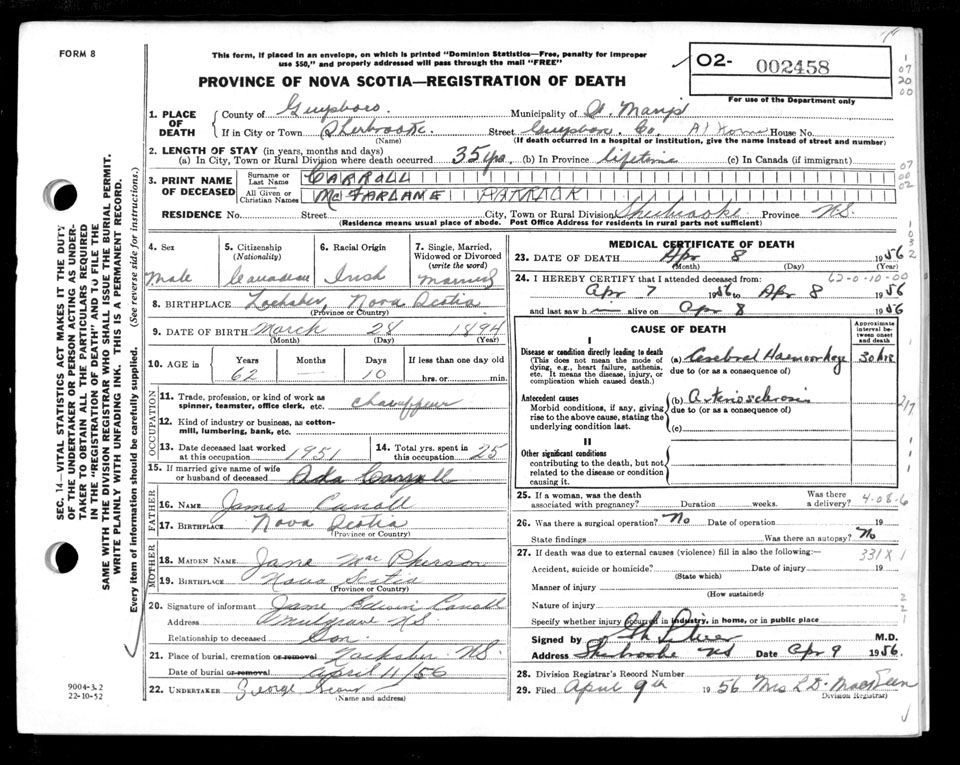 FORM 8
This form, if placed in an envelope, on which is printed "Dominion Statistics—Free, penalty for improper
use $50," and properly addressed will pass through the mail "FREE"
PROVINCE OF NOVA SCOTIA—REGISTRATION OF DEATH
02- 002458
For use of the Department only
1. PLACE OF DEATH
County of Guysboro. Municipality of St. Mary's
If in City or Town Sherbrooke. Street Guysboro. Co. At Home House No.
(Name) (If death occurred in a hospital or institution, give the name instead of street and number)
2. LENGTH OF STAY (in years, months and days)
(a) In City, Town or Rural Division where death occurred 35 yrs. (b) In Province lifetime (c) In Canada (if immigrant)
3. PRINT NAME OF DECEASED
Surname or Last Name CARROLL
All Given or Christian Names McFARLANE PATRICK
RESIDENCE No. Street City, Town or Rural Division Sherbrooke Province N.S.
(Residence means usual place of abode. Post Office Address for residents in rural parts not sufficient)
4. Sex
Male
5. Citizenship
(Nationality)
Canadian
6. Racial Origin
Irish
7. Single, Married, Widowed or Divorced
(write the word)
Married
8. BIRTHPLACE Lochaber, Nova Scotia
(Province or Country)
9. DATE OF BIRTH March 28 1894
(Month) (Day) (Year)
10. AGE in
Years Months Days If less than one day old
62 — 10 hrs. or min.
OCCUPATION
11. Trade, profession, or kind of work as
spinner, teamster, office clerk, etc. chauffeur
12. Kind of industry or business, as cotton-
mill, lumbering, bank, etc.
13. Date deceased last worked
at this occupation 1951
14. Total yrs. spent in
this occupation 25
15. If married give name of wife
or husband of deceased Ada Carroll
FATHER
16. NAME James Carroll
17. BIRTHPLACE Nova Scotia
(Province or Country)
MOTHER
18. MAIDEN NAME Jane MacPherson
19. BIRTHPLACE Nova Scotia
(Province or Country)
20. Signature of informant James Edwin Carroll
Address Mulgrave N.S.
Relationship to deceased Son.
21. Place of burial, cremation or removal Lochaber N.S.
Date of burial or removal April 11/56
22. UNDERTAKER George
(Name and address)
MEDICAL CERTIFICATE OF DEATH
23. DATE OF DEATH Apr 8 1956
(Month) (Day) (Year)
24. I HEREBY CERTIFY that I attended deceased from:
62-0-10-00
Apr 7 1956 to Apr 8 1956
and last saw him alive on Apr 8 1956
CAUSE OF DEATH
Approximate interval between onset and death
I
Disease or condition directly leading to death
(This does not mean the mode of
dying, e.g., heart failure, asthenia,
etc. It means the disease, injury, or
complication which caused death.)
(a) Cerebral Haemorrhage 30 hrs
due to (or as a consequence of)
Antecedent causes
Morbid conditions, if any, giving
rise to the above cause, stating the
underlying condition last.
(b) Arteriosclerosis
due to (or as a consequence of)
(c)
II
Other significant conditions
contributing to the death, but not
related to the disease or condition
causing it.
25. If a woman, was the death
associated with pregnancy? Duration weeks. Was there
a delivery? 4-08-6
26. Was there a surgical operation? No Date of operation 19
State findings Was there an autopsy? No
27. If death was due to external causes (violence) fill in also the following:—
331X1
Accident, suicide or homicide? Date of injury 19
(State which)
Manner of injury
(How sustained)
Nature of injury
Specify whether injury occured in industry, in home, or in public place
Signed by M.D.
Address Sherbrooke NS Date Apr 9 1956.
28. Division Registrar's Record Number
29. Filed April 9th 1956 Mrs L D. MacKeen
Division Registrar
SEC. 14—VITAL STATISTICS ACT MAKES IT THE DUTY
OF THE UNDERTAKER OR PERSON ACTING AS UNDER-
TAKER TO OBTAIN ALL THE PARTICULARS REQUIRED
IN THE "REGISTRATION OF DEATH" AND TO FILE THE
SAME WITH THE DIVISION REGISTRAR WHO SHALL ISSUE THE BURIAL PERMIT.
WRITE PLAINLY WITH UNFADING INK. THIS IS A PERMANENT RECORD.
Every item of information should be carefully supplied. (See reverse side for instructions.)
9004-3.2
22-10-52